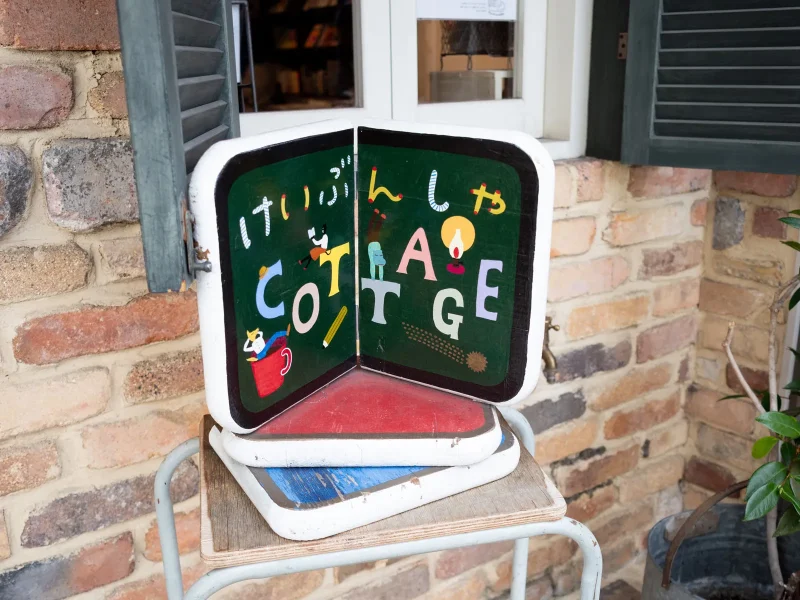 けいぶんしゃ
COTTAGE